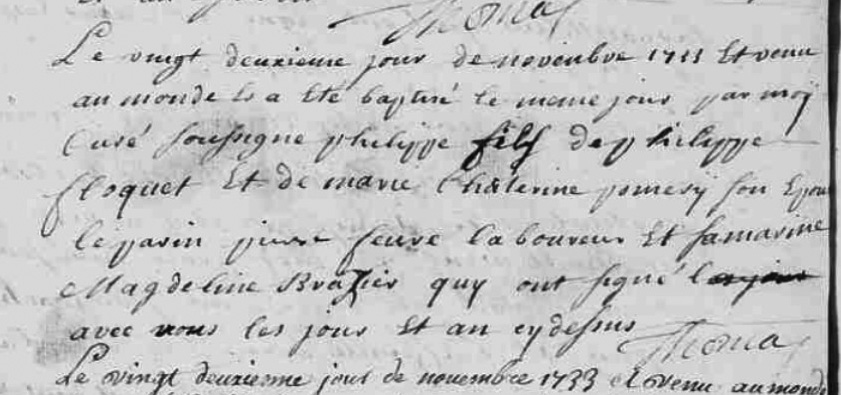 Thoma
Le vingt deuxieme jour de novembre 1733 Et venu
au monde Es a Eté baptisé le meme jour par moÿ
Curé soussigne philippe fils de philippe
floquet Et de marie Chaterine pomerÿ son Epou
le parin pierre feuvre laboureur Et sa marine
Magdeline Brazier quy ont signé
avec nous les jour Et an cydessus
Thoma
Le vingt deuxieme jour de novembre 1733 Et venu au monde